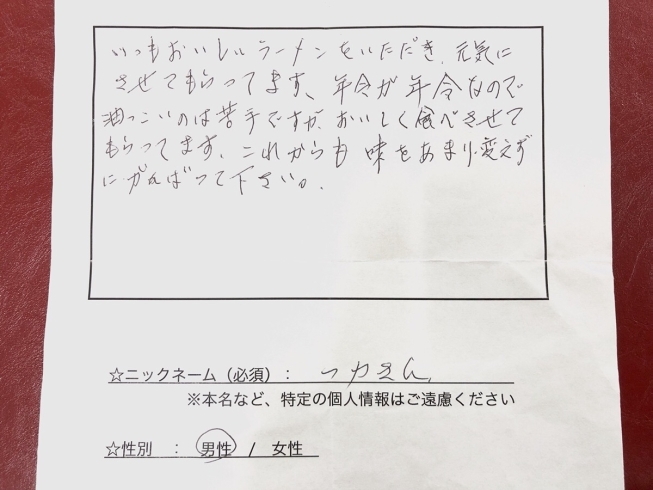 いつもおいしいラーメンをいただき、元気に
させてもらってます。年令が年令なので
油っこいのは苦手ですが、おいしく食べさせて
もらってます。これからも味をあまり変えず
にがんばって下さい。
☆ニックネーム（必須）： つかさん
※本名など、特定の個人情報はご遠慮ください
☆性別 ： 男性 / 女性